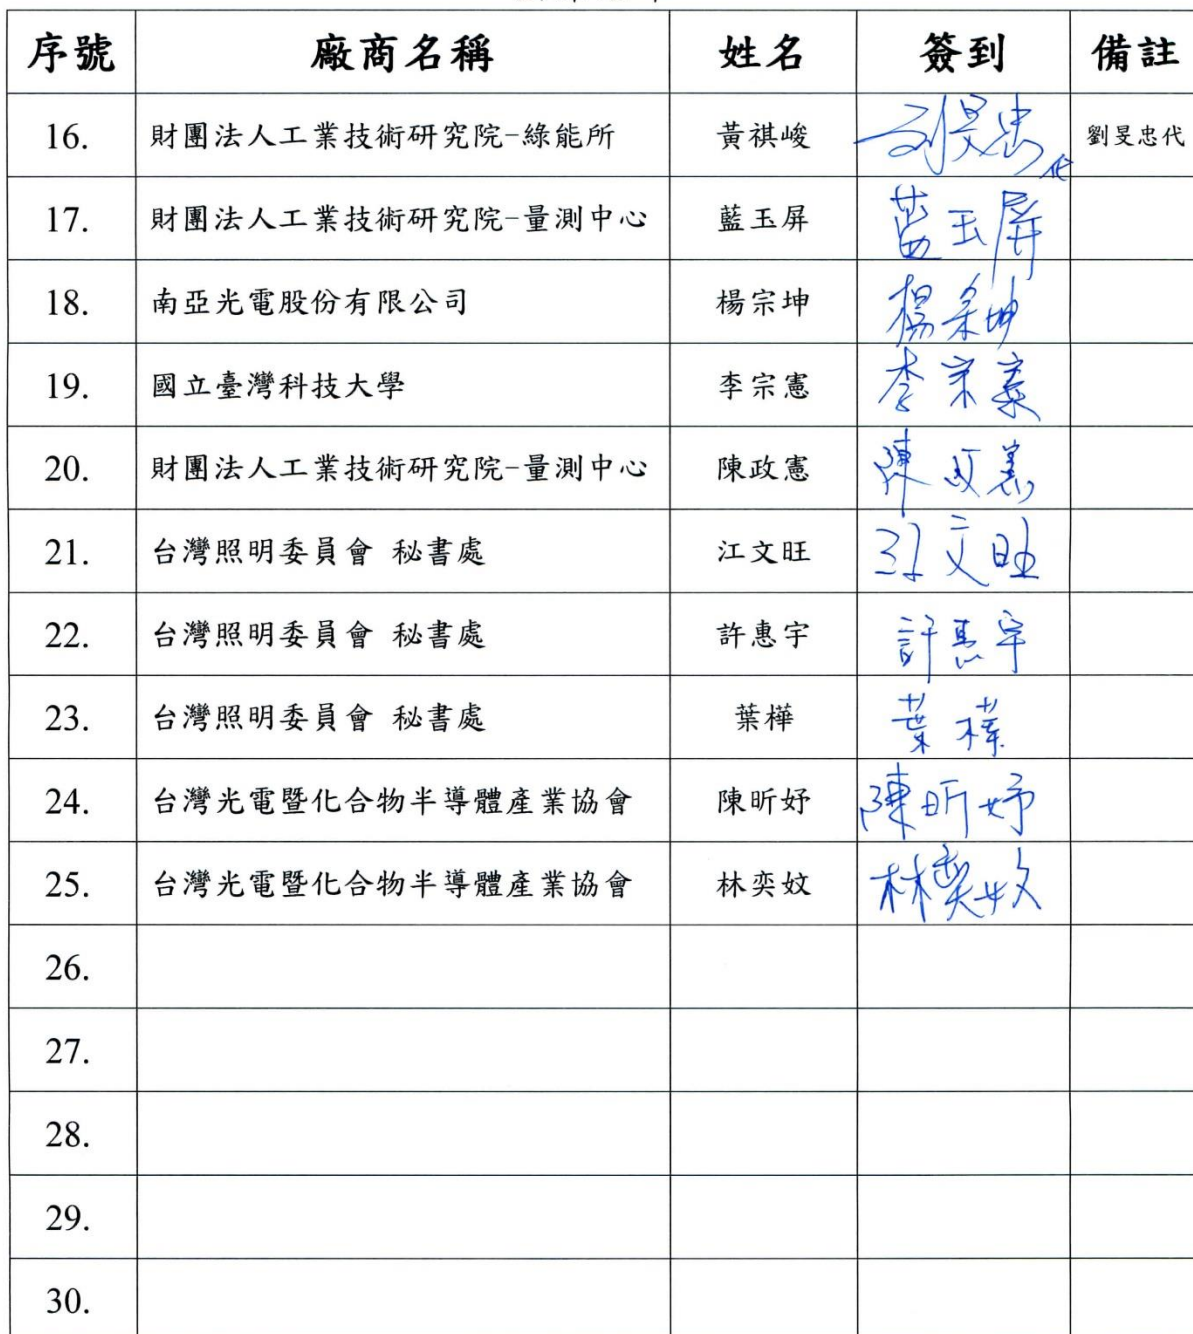 序號 廠商名稱 姓名 簽到 備註
16. 財團法人工業技術研究院-綠能所 黃祺峻 劉旻忠代 劉旻忠代
17. 財團法人工業技術研究院-量測中心 藍玉屏 藍玉屏
18. 南亞光電股份有限公司 楊宗坤 楊宗坤
19. 國立臺灣科技大學 李宗憲 李宗憲
20. 財團法人工業技術研究院-量測中心 陳政憲 陳政憲
21. 台灣照明委員會 秘書處 江文旺 江文旺
22. 台灣照明委員會 秘書處 許惠宇 許惠宇
23. 台灣照明委員會 秘書處 葉樺 葉樺
24. 台灣光電暨化合物半導體產業協會 陳昕妤 陳昕妤
25. 台灣光電暨化合物半導體產業協會 林奕妏 林奕妏
26.
27.
28.
29.
30.